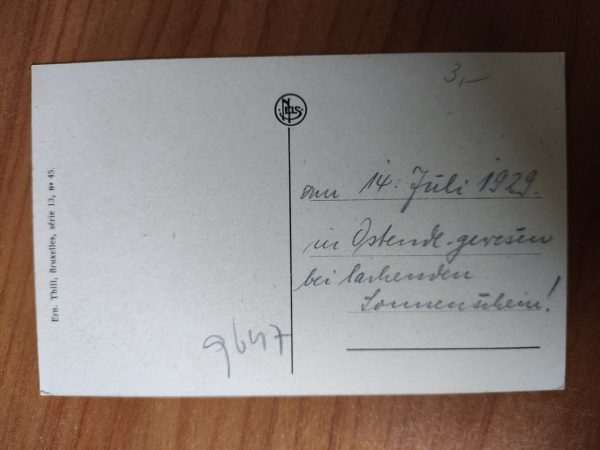 3,-
Nels
am 14. Juli 1929.
in Ostende gewesen
bei lachenden
Sonnenschein!
9647
Ern. Thill, Bruxelles, série 13, n° 45.